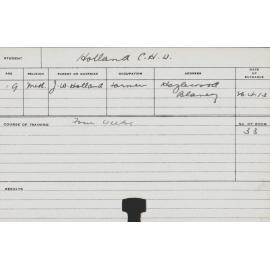 STUDENT Holland C.H.W.
AGE RELIGION PARENT OR GUARDIAN OCCUPATION ADDRESS DATE OF ENTRANCE
19 Meth. J.W. Holland Farmer Hazlewood
Blaney
COURSE OF TRAINING Four Weeks NO. OF ROOM
33
RESULTS